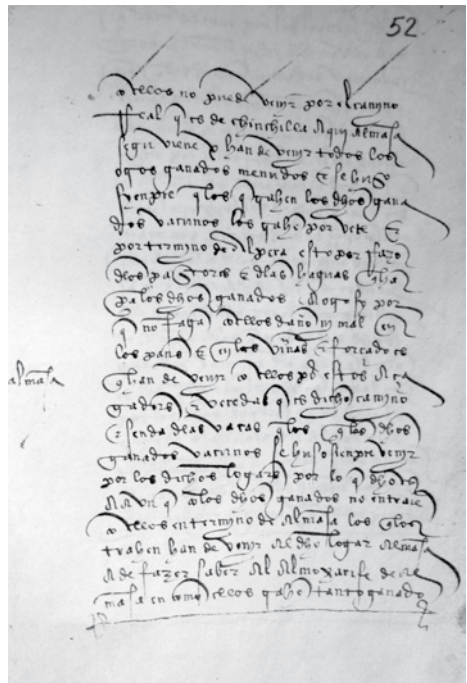 52
con ellos no puede venir por el camino
Real q es de chinchilla a qui almasa
segu viene e han de venir todos los
otros ganados menudos e se huso
syenpre q los q trahen los dhos gana
dos vacunos los trahe por vete e
por termino de alpera esto por
dlos pastores e dlas haguas q ha
pa los dhos ganados por
q no faga con ellos daño ni mal en
los panes e en las viñas e forçado es
q han de venir con ellos por estos
e veredas q es dicho camino
e senda dlas vacas q los dhos
ganados vacunos se huso sienpre venir
por los dichos logares por lo q dho es
a un q con los dhos ganados no entrase
con ellos en termino de almasa los q los
trahen han de venir al dho logar almasa
a de fazer saber al almoxarife de al
masa en como ellos trahe tanto ganado
almasa